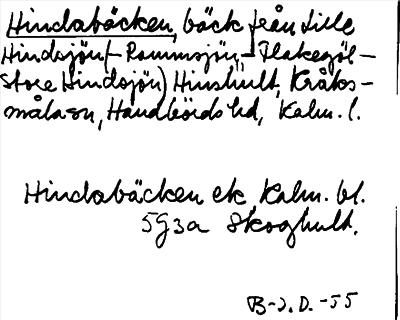 Hindabäcken, bäck från Lille
Hindsjön (- Rammsjön - Flakegöl -
Store Hindsjön) Hinshult, Kråks-
målasn, Handbörds hd, Kalm. l.
Hindabäcken ek. Kalm. bl.
5g3a Skoghult.
B-J. D. -55